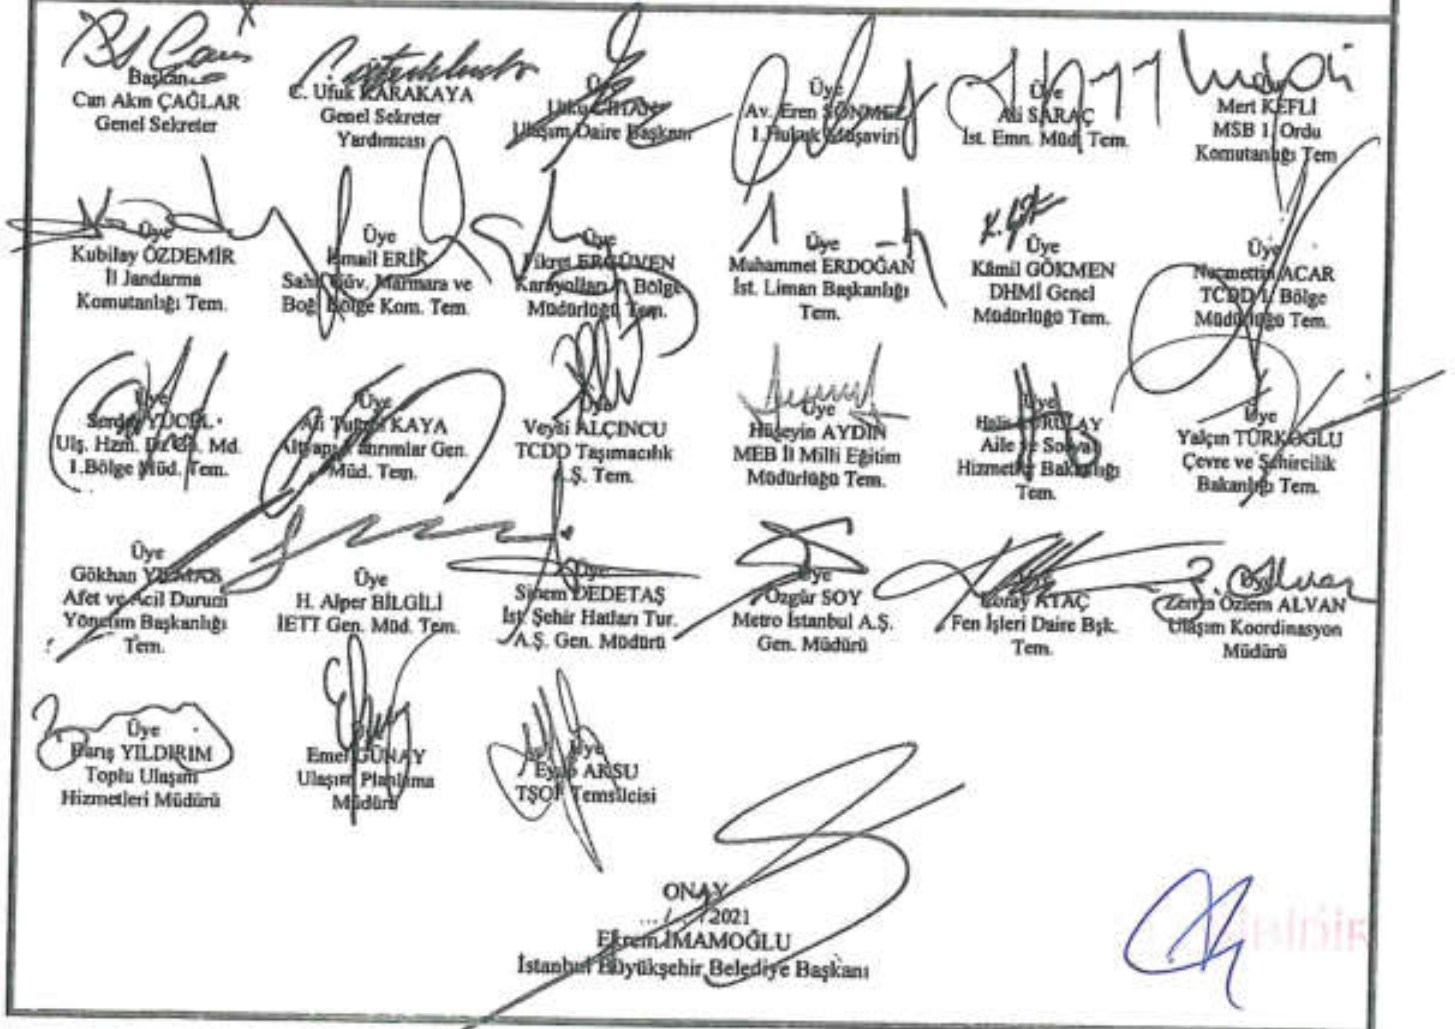 Başkan
Can Akın ÇAĞLAR
Genel Sekreter
C. Ufuk KARAKAYA
Genel Sekreter
Yardımcısı
Utku CİHAN
Ulaşım Daire Başkanı
Üye
Av. Eren SÖNMEZ
1.Hukuk Müşaviri
Üye
Ali SARAÇ
İst. Emn. Müd. Tem.
Mert KEFLİ
MSB 1. Ordu
Komutanlığı Tem
Üye
Kubilay ÖZDEMİR
İl Jandarma
Komutanlığı Tem.
Üye
İsmail ERİK
Sahil Güv. Marmara ve
Boğ. Bölge Kom. Tem.
Üye
Fikret ERGÜVEN
Karayolları Bölge
Müdürlüğü Tem.
Üye
Muhammet ERDOĞAN
İst. Liman Başkanlığı
Tem.
Üye
Kâmil GÖKMEN
DHMİ Genel
Müdürlüğü Tem.
Üye
Necmettin ACAR
TCDD 1. Bölge
Müdürlüğü Tem.
Üye
Serdar YÜCEL
Ulş. Hzm. Md.
1.Bölge Müd. Tem.
Üye
Ali KAYA
Altyapı Yatırımlar Gen.
Müd. Tem.
Veysi ALÇINCU
TCDD Taşımacılık
A.Ş. Tem.
Üye
Hüseyin AYDIN
MEB İl Milli Eğitim
Müdürlüğü Tem.
Üye
Aile ve Sosyal
Hizmetler Bakanlığı
Tem.
Üye
Yalçın TÜRKOĞLU
Çevre ve Şehircilik
Bakanlığı Tem.
Üye
Gökhan YILMAZ
Afet ve Acil Durum
Yönetim Başkanlığı
Tem.
Üye
H. Alper BİLGİLİ
İETT Gen. Müd. Tem.
Üye
Sinem DEDETAŞ
İst. Şehir Hatları Tur.
A.Ş. Gen. Müdürü
Üye
Özgür SOY
Metro İstanbul A.Ş.
Gen. Müdürü
ATAÇ
Fen İşleri Daire Bşk.
Tem.
Özlem ALVAN
Ulaşım Koordinasyon
Müdürü
Üye
Barış YILDIRIM
Toplu Ulaşım
Hizmetleri Müdürü
Emel GÜNAY
Ulaşım Planlama
Müdürü
Üye
Eyüp AKSU
TŞOF Temsilcisi
ONAY
.../.../2021
Ekrem İMAMOĞLU
İstanbul Büyükşehir Belediye Başkanı